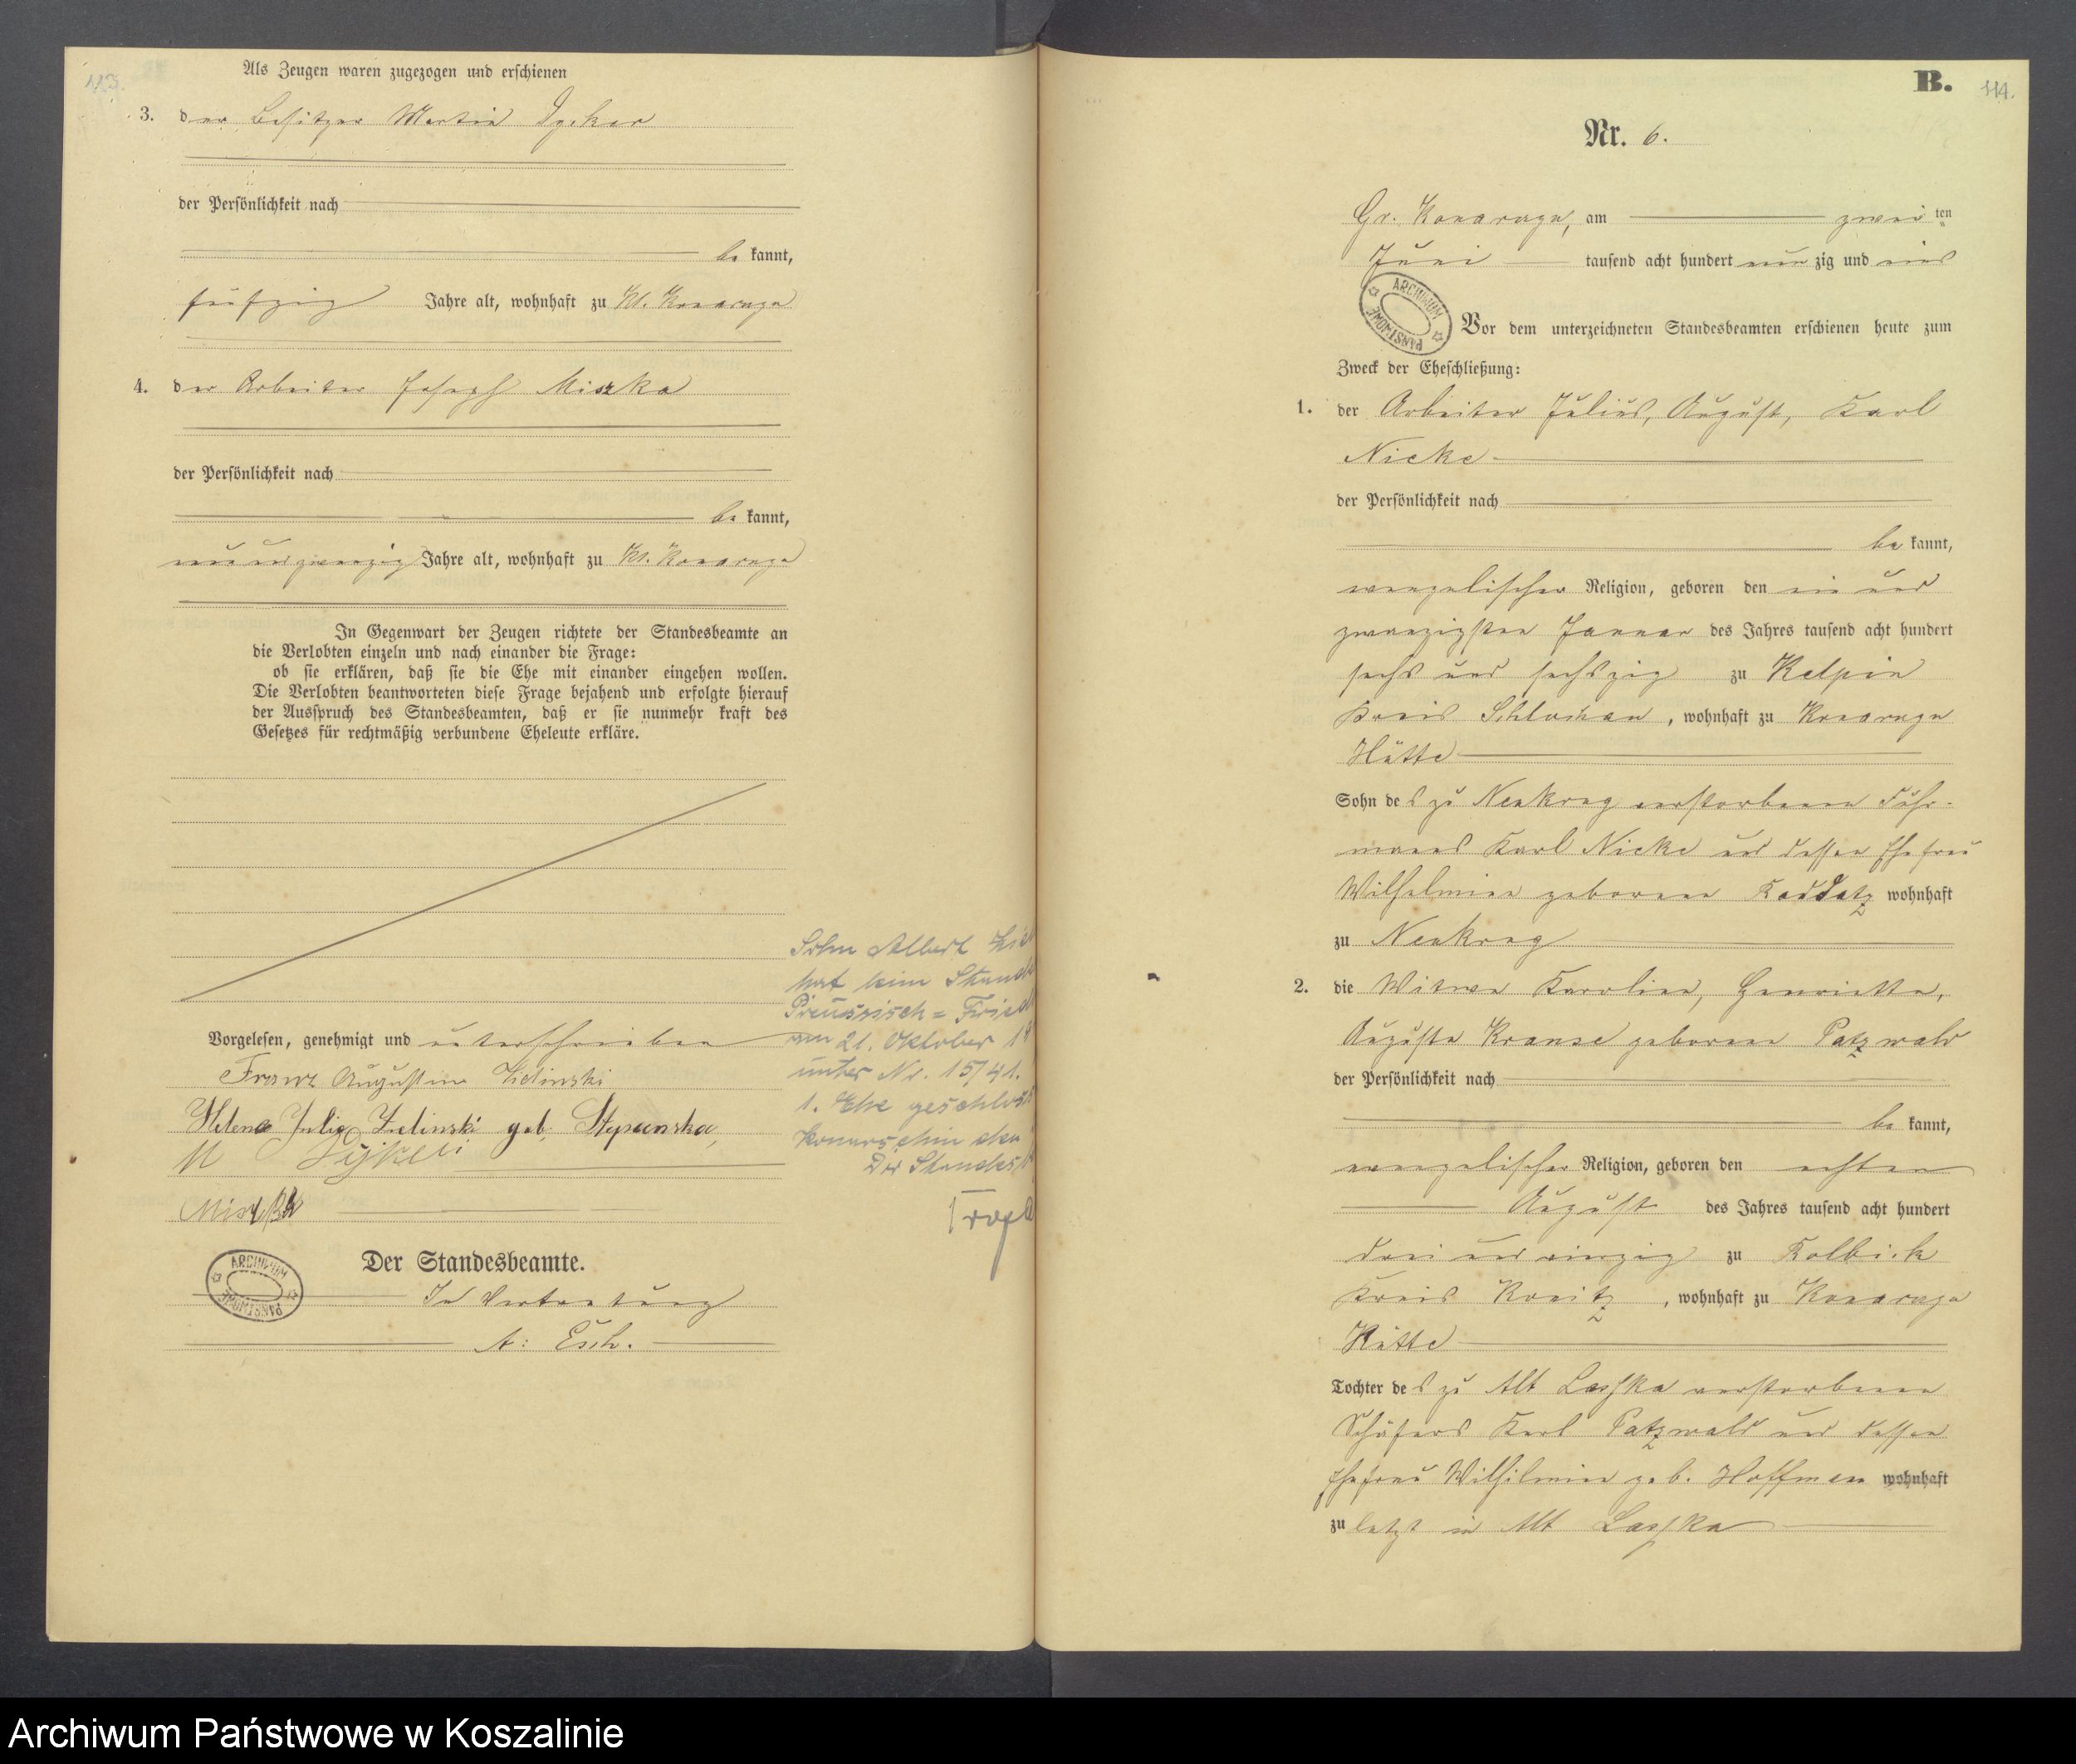 113.
Als Zeugen waren zugezogen und erschienen
3. der Besitzer Martin
der Persönlichkeit nach
be kannt,
fünfzig Jahre alt, wohnhaft zu Kl. Konarczyn
4. der Arbeiter Joseph Miszka
der Persönlichkeit nach
be kannt,
neunundzwanzig Jahre alt, wohnhaft zu Kl. Konarczyn
In Gegenwart der Zeugen richtete der Standesbeamte an
die Verlobten einzeln und nach einander die Frage:
ob sie erklären, daß sie die Ehe mit einander eingehen wollen.
Die Verlobten beantworteten diese Frage bejahend und erfolgte hierauf
der Ausspruch des Standesbeamten, daß er sie nunmehr kraft des
Gesetzes für rechtmäßig verbundene Eheleute erkläre.
Vorgelesen, genehmigt und unterschrieben
Franz Augustin Zielinski
Helena Julia Zielinski geb. Stypczynska,
M
Miszka
Der Standesbeamte.
In Vertretung
A: Esch.
Sohn Albert
hat beim Stande
Preussisch = Fried
am 21. Oktober 19
unter Nr. 15/41.
1. Ehe geschloss
Der Standes
ARCHIWUM PAŃSTWOWE
B.
114.
Nr. 6.
Gr. Konarczyn, am zwei ten
Juni tausend acht hundert neun zig und eins
ARCHIWUM PAŃSTWOWE
Vor dem unterzeichneten Standesbeamten erschienen heute zum
Zweck der Eheschließung:
1. der Arbeiter Julius, August, Karl
Nicke
der Persönlichkeit nach
be kannt,
evangelischer Religion, geboren den ein und
zwanzigsten Januar des Jahres tausend acht hundert
sechs und sechszig zu Kelpin
Kreis Schlochau, wohnhaft zu Konarczyn
Hütte
Sohn des zu Neukrug verstorbenen Fuhr-
manns Karl Nicke und dessen Ehefrau
Wilhelmine geborene Raddatz wohnhaft
zu Neukrug
2. die Witwe Karoline, Henriette,
Auguste Krause geborene Patzwald
der Persönlichkeit nach
be kannt,
evangelischer Religion, geboren den achten
August des Jahres tausend acht hundert
drei und vierzig zu Rolbick
Kreis Konitz, wohnhaft zu Konarczyn
Hütte
Tochter des zu Alt Laska verstorbenen
Schäfers Karl Patzwald und dessen
Ehefrau Wilhelmine geb. Hoffmann wohnhaft
zuletzt in Alt Laska
Archiwum Państwowe w Koszalinie